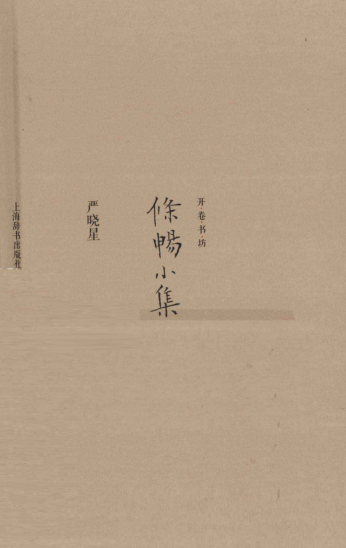 开·卷·书·坊
條畼小集
严晓星
上海辞书出版社